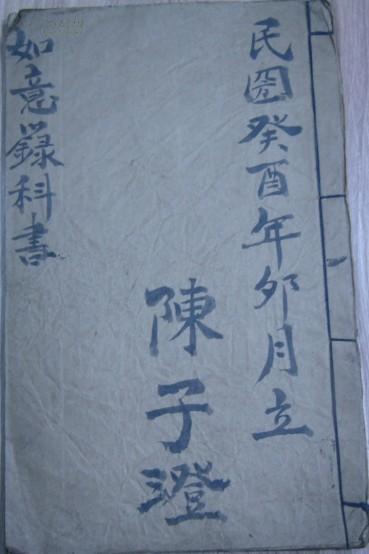 民國癸酉年夘月立
陳子澄
如意錄科書